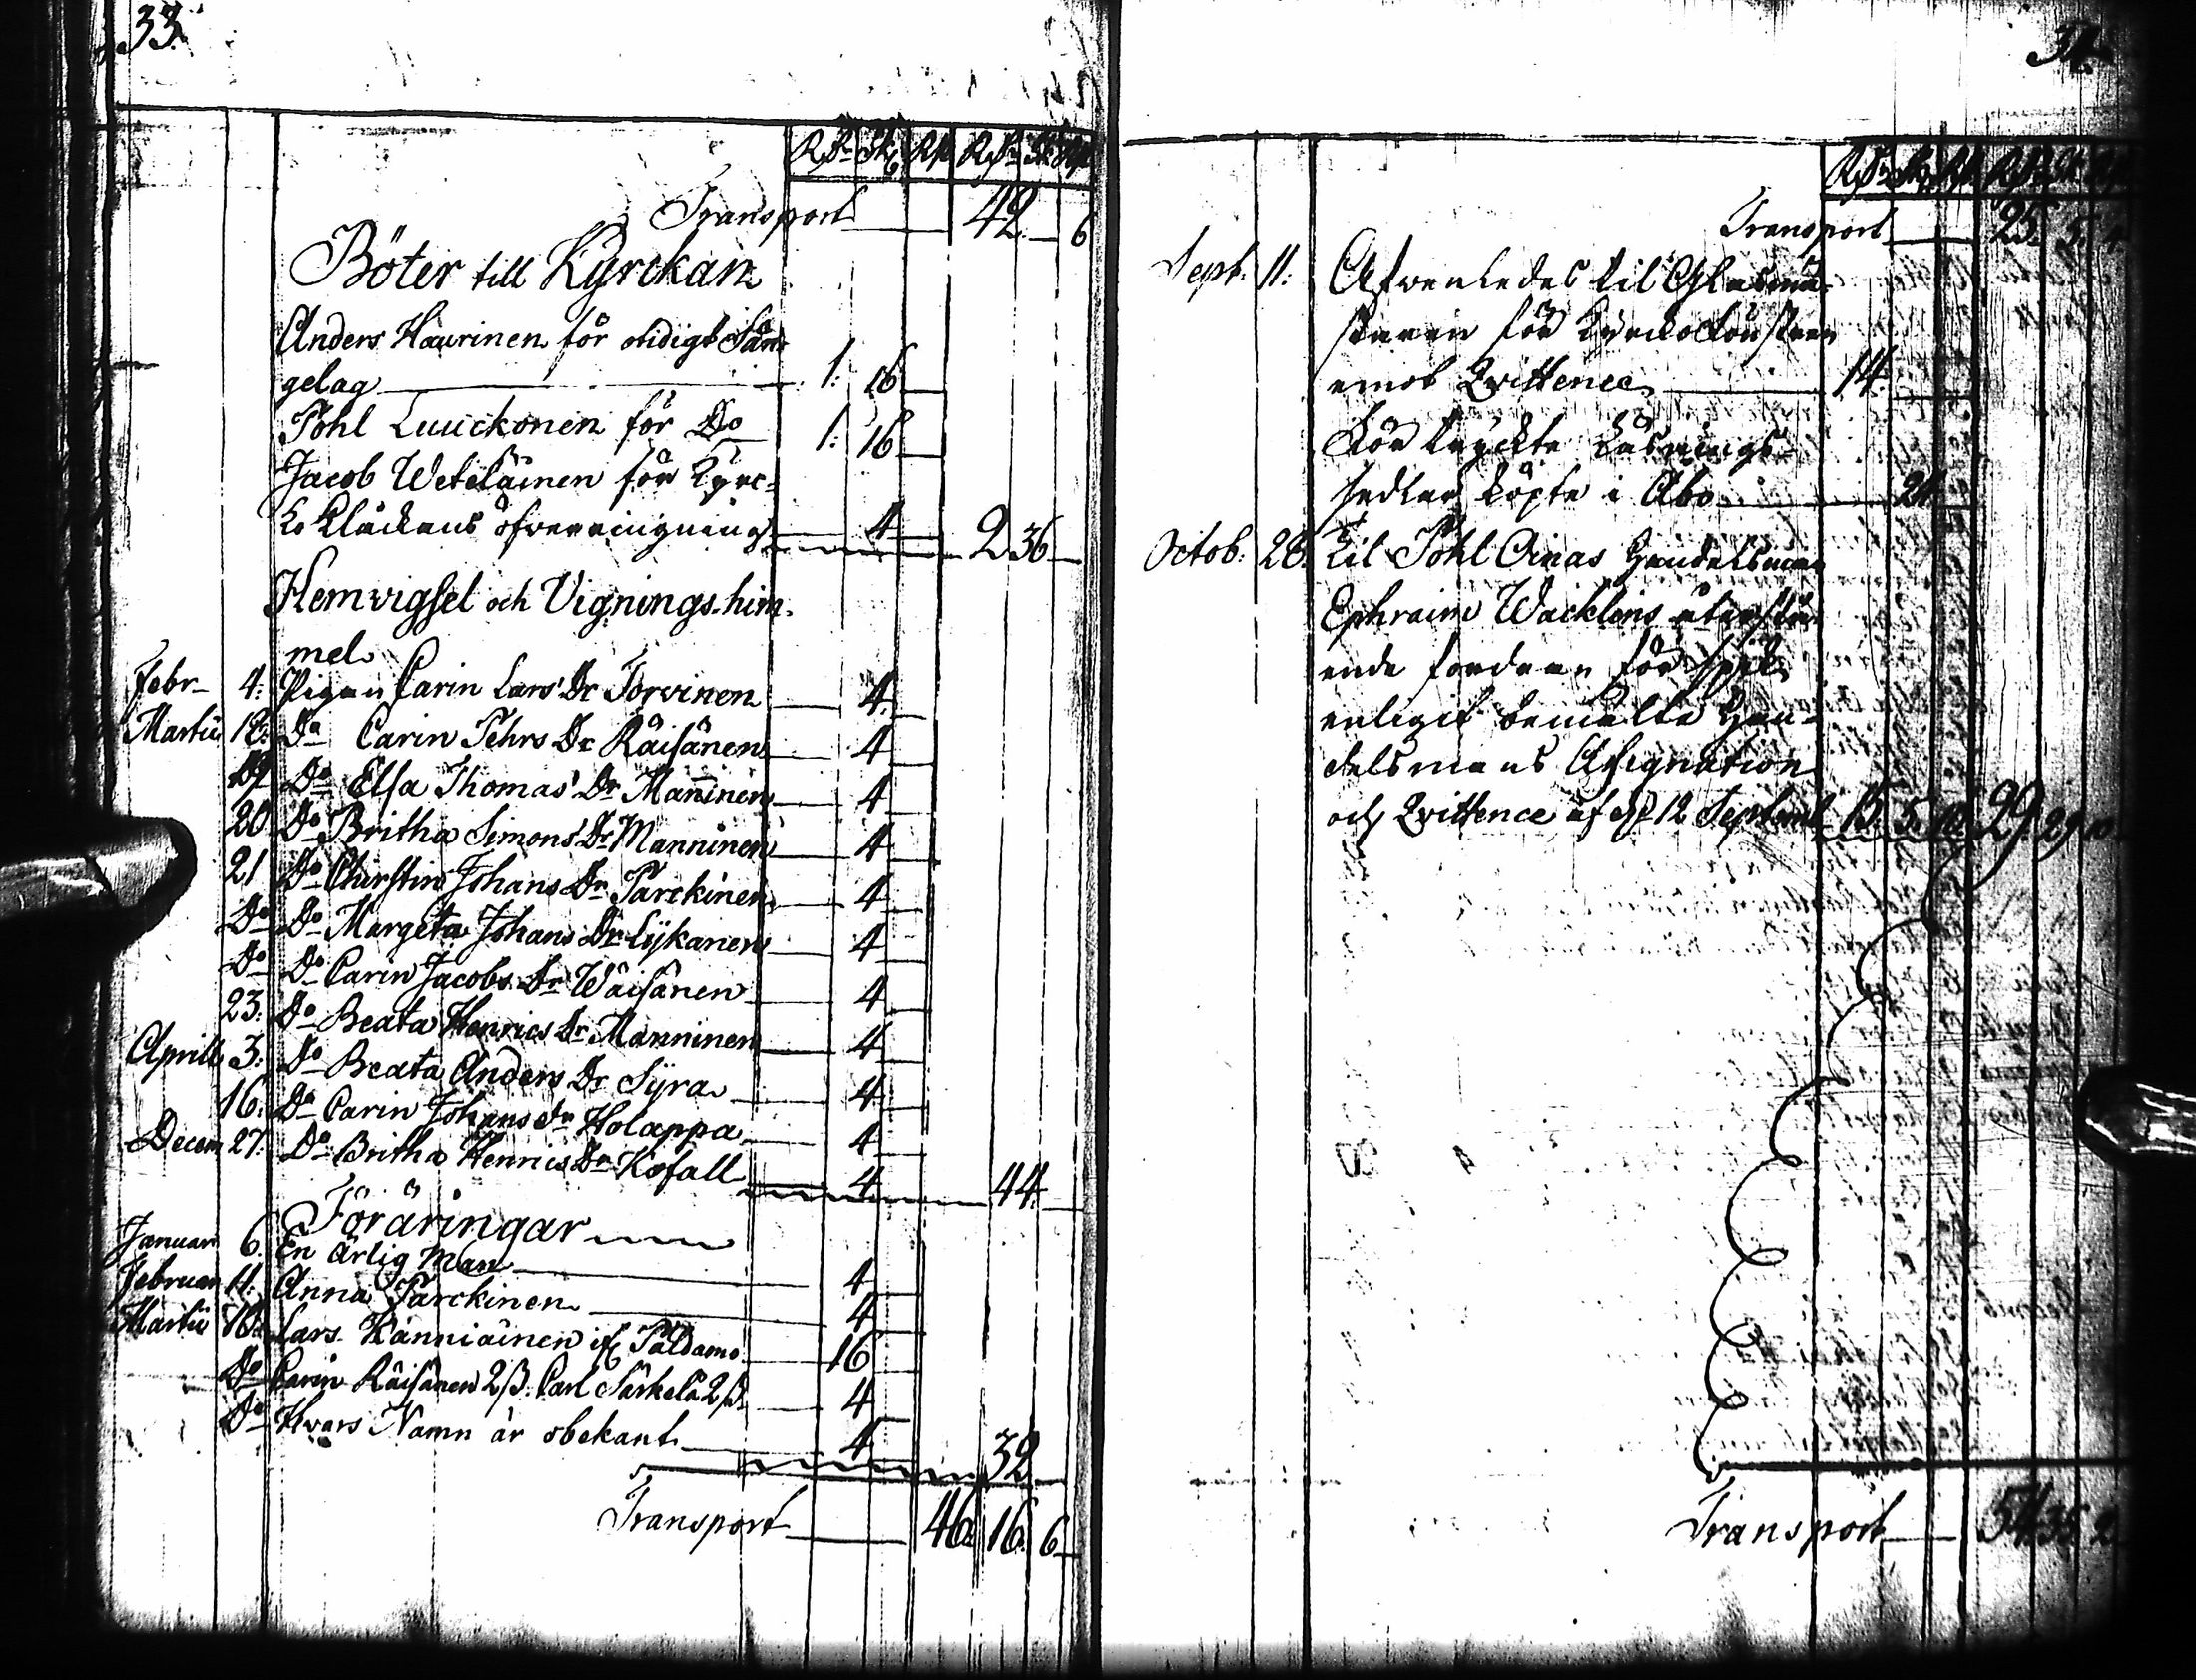 33.
Rdr Sk Rst Rdr Sk Rst
Transport 42. 6
Böter till Kyrckan
Anders Haurinen för otidigt Sän-
gelag 1: 16
Pohl Luuckonen för Do 1: 16
Jacob Weteläinen för Kyrc-
ko klåckans ofverringning 4 2 36
Hemvigsel och Vignings-him-
mel
Febr 4: Pigan Carin Lars Dr Torvinen 4.
Martii 18: Do Carin Pehrs Dr Räisänen 4
19 Do Elsa Thomas Dr Manninen 4
20 Do Britha Simons Dr Manninen 4
21 Do Christin Johans Dr Parckinen 4
Do Do Margeta Johans Dr Lÿkanen 4
Do Do Carin Jacobs Dr Wäisänen 4
23. Do Beata Henrics Dr Manninen 4
Aprill 3: Do Beata Anders Dr Syra 4
16. Do Carin Johans dr Holappa 4
Decem 27. Do Britha Henrics Dr Kofall 4 44.
Föräringar
Januari 6. En Ärlig Man 4
Februar 11. Anna Parckinen 4
Martii 18 Lars Känniäinen if: Paldamo 16
Do Carin Räisänen 2 β. Carl Särkelä 2 β 4
Do Hvars Namn är obekant 4 32
Transport 46. 16. 6
34.
Rdr Sk Rst Rdr Sk
Transport 25. 5.
Sept. 11: Äfvenledes til Glasmä-
staren för Kyrckofönstren
emot Qvittence 14.
För tryckte Läsnings-
sedlar köpte i Åbo 24
Octob: 28. til Pohl Ainas Handelsman
Ephraim Wacklins återstå-
ende fordran för spik
enligit bemälte Han-
delsmans Assignation
och Qvittence af d. 12 Septemb 15. 5. 10. 29. 29
Transport 54. 35 2